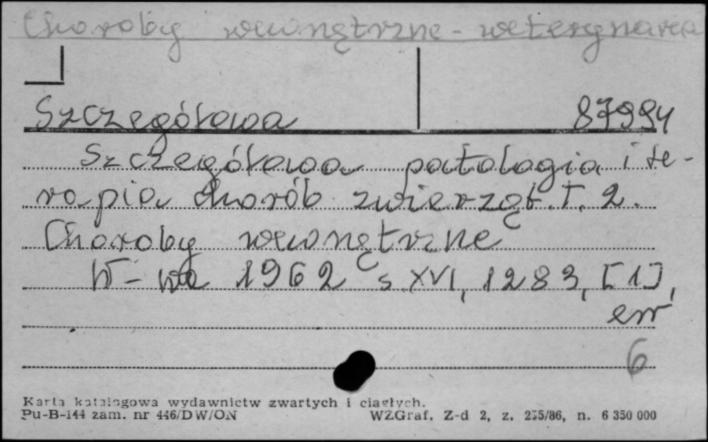 Choroby wewnętrzne - weterynaria
Szczegółowa 87994
Szczegółowa patologia i te-
rapia chorób zwierząt. T. 2.
Choroby wewnętrzne
W-wa 1962 s XVI, 1283, [1],
err
6
Karta katalogowa wydawnictw zwartych i ciągłych.
Pu-B-144 zam. nr 446/DW/ON WZGraf. Z-d 2, z. 255/86, n. 6 350 000